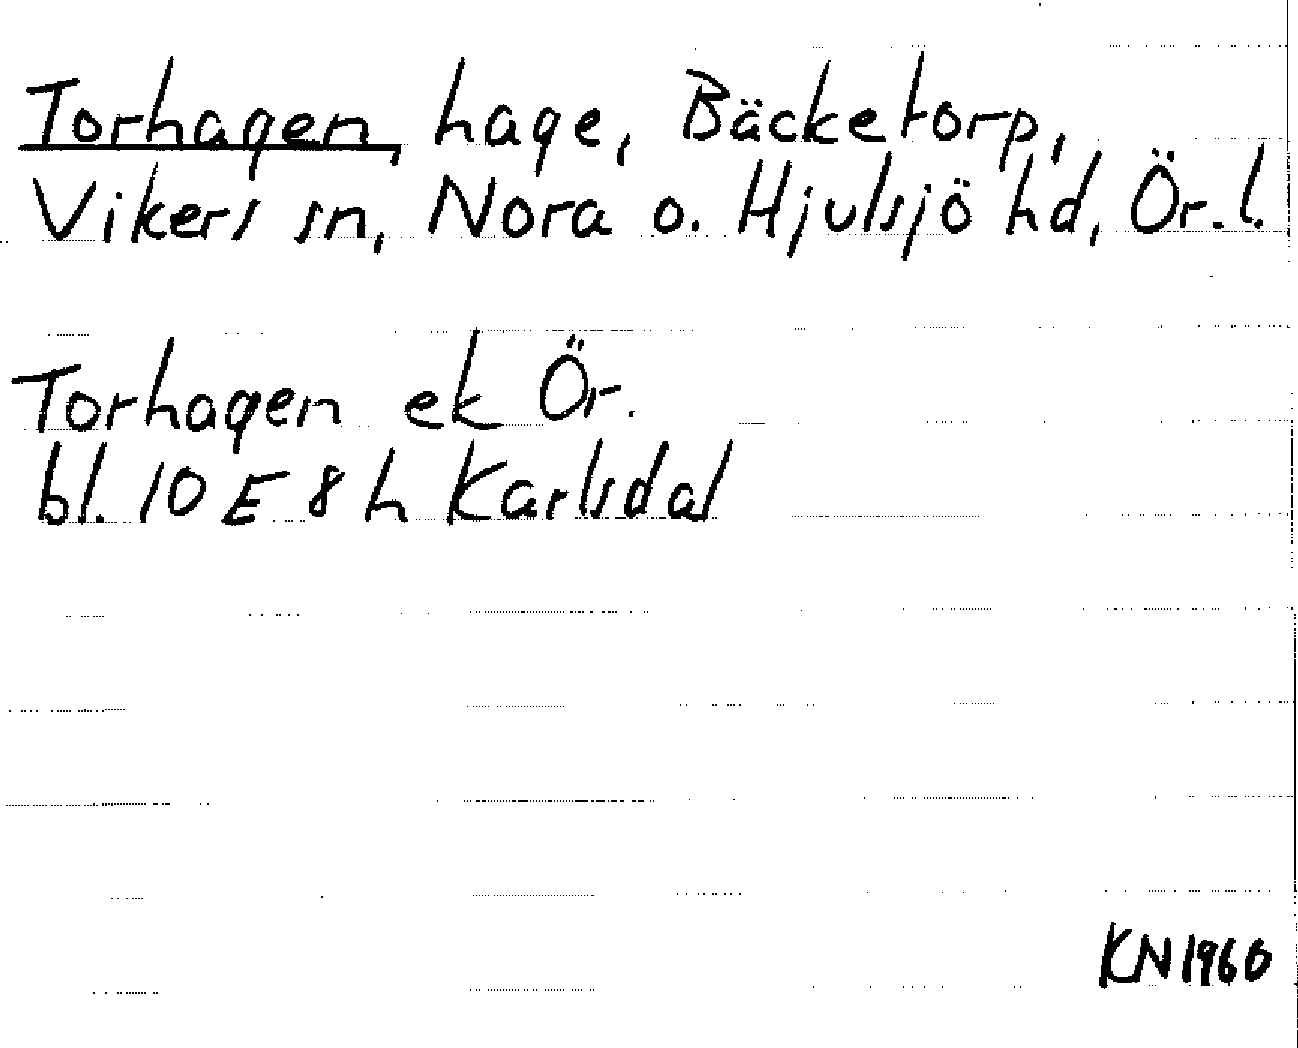 Torhagen, hage, Bäcketorp,
Vikers sn, Nora o. Hjulsjö hd, Ör. l.
Torhagen ek Ör.
bl. 10 E 8 h Karlsdal
KN 1960